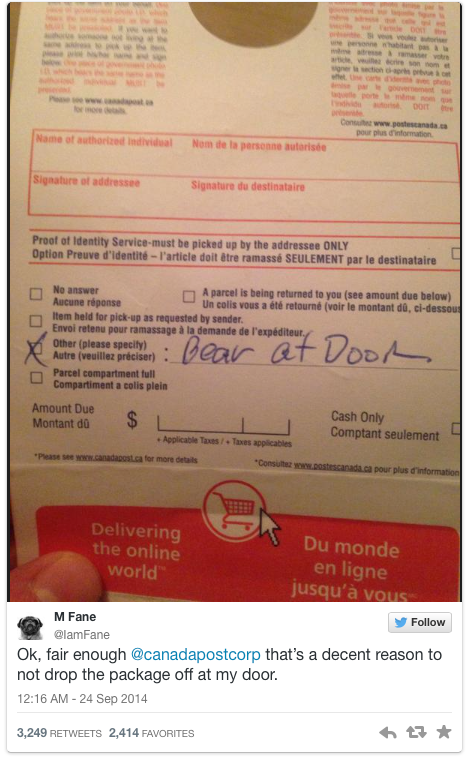 issued government photo I.D.
which bears the same name as the
MUST be presented. If you want to
authorize someone not living at the
same address to pick up the item,
please print his/her name and sign
below. One piece of government photo
I.D. which bears the same name as the
authorized individual MUST be
presented.
Please see www.canadapost.ca
for more details.
gouvernement sur laquelle figure la
même adresse que celle qui est
inscrite sur l'article DOIT être
présentée. Si vous voulez autoriser
une personne n'habitant pas à la
même adresse à ramasser votre
article, veuillez écrire son nom et
signer la section ci-après prévue à cet
effet. Une carte d'identité avec photo
émise par le gouvernement sur
laquelle porte le même nom que
l'individu autorisé. DOIT être
présentée.
Consultez www.postescanada.ca
pour plus d'information.
Name of authorized individual Nom de la personne autorisée
Signature of addressee Signature du destinataire
Proof of Identity Service-must be picked up by the addressee ONLY
Option Preuve d'identité – l'article doit être ramassé SEULEMENT par le destinataire
No answer
Aucune réponse
A parcel is being returned to you (see amount due below)
Un colis vous a été retourné (voir le montant dû, ci-dessous
Item held for pick-up as requested by sender.
Envoi retenu pour ramassage à la demande de l'expéditeur.
Other (please specify)
Autre (veuillez préciser) : Bear at Door
Parcel compartment full
Compartiment a colis plein
Amount Due
Montant dû
$
+ Applicable Taxes / + Taxes applicables
Cash Only
Comptant seulement
*Please see www.canadapost.ca for more details
*Consultez www.postescanada.ca pour plus d'information
Delivering
the online
world™
Du monde
en ligne
jusqu'à vous
M Fane
@IamFane
Follow
Ok, fair enough @canadapostcorp that's a decent reason to
not drop the package off at my door.
12:16 AM - 24 Sep 2014
3,249 RETWEETS 2,414 FAVORITES